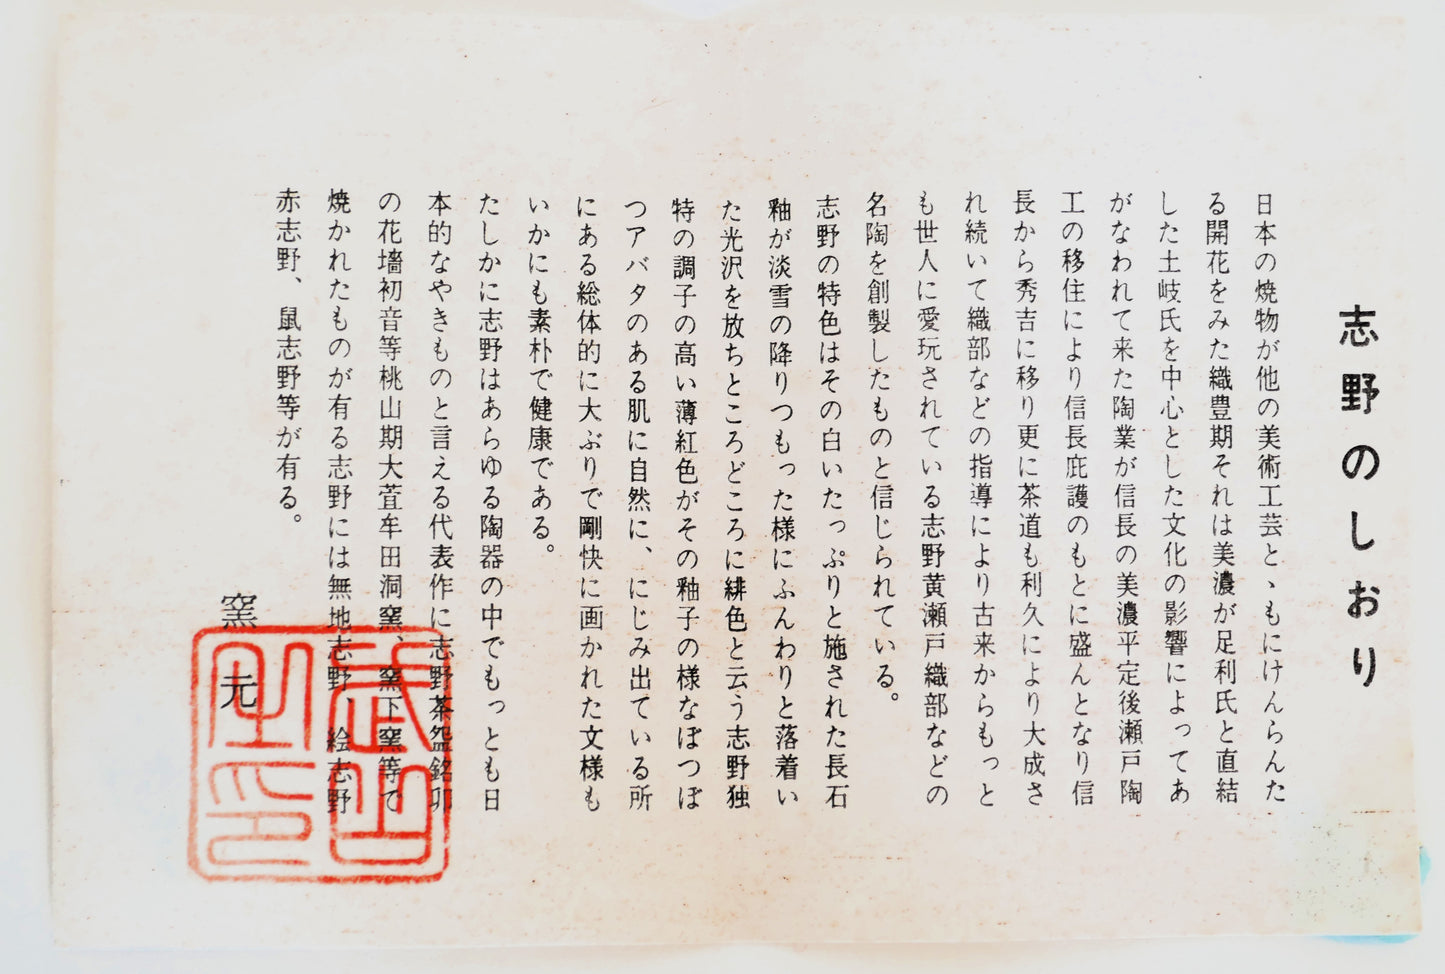 志野のしおり
日本の焼物が他の美術工芸と、もにけんらんた
る開花をみた織豊期それは美濃が足利氏と直結
した土岐氏を中心とした文化の影響によってあ
がなわれて来た陶業が信長の美濃平定後瀬戸陶
工の移住により信長庇護のもとに盛んとなり信
長から秀吉に移り更に茶道も利久により大成さ
れ続いて織部などの指導により古来からもっと
も世人に愛玩されている志野黄瀬戸織部などの
名陶を創製したものと信じられている。
志野の特色はその白いたっぷりと施された長石
釉が淡雪の降りつもった様にふんわりと落着い
た光沢を放ちところどころに緋色と云う志野独
特の調子の高い薄紅色がその釉子の様なぽつぽ
つアバタのある肌に自然に、にじみ出ている所
にある総体的に大ぶりで剛快に画かれた文様も
いかにも素朴で健康である。
たしかに志野はあらゆる陶器の中でもっとも日
本的なやきものと言える代表作に志野茶盌銘卯
の花墻初音等桃山期大萱牟田洞窯、窯下窯等で
焼かれたものが有る志野には無地志野、絵志野
赤志野、鼠志野等が有る。
窯元